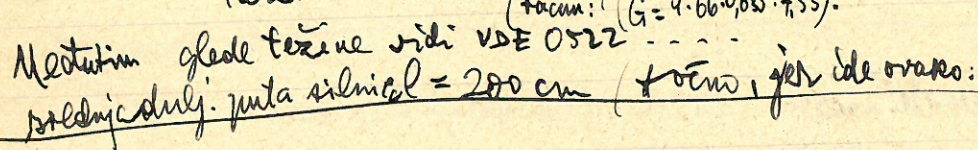 (račun: (G = 4·66·0,035·7,55).
Međutim glede težine vidi VDE 0522 - - - - -
srednja dulj. puta silnica l = 200 cm (točno, jer ide ovako: